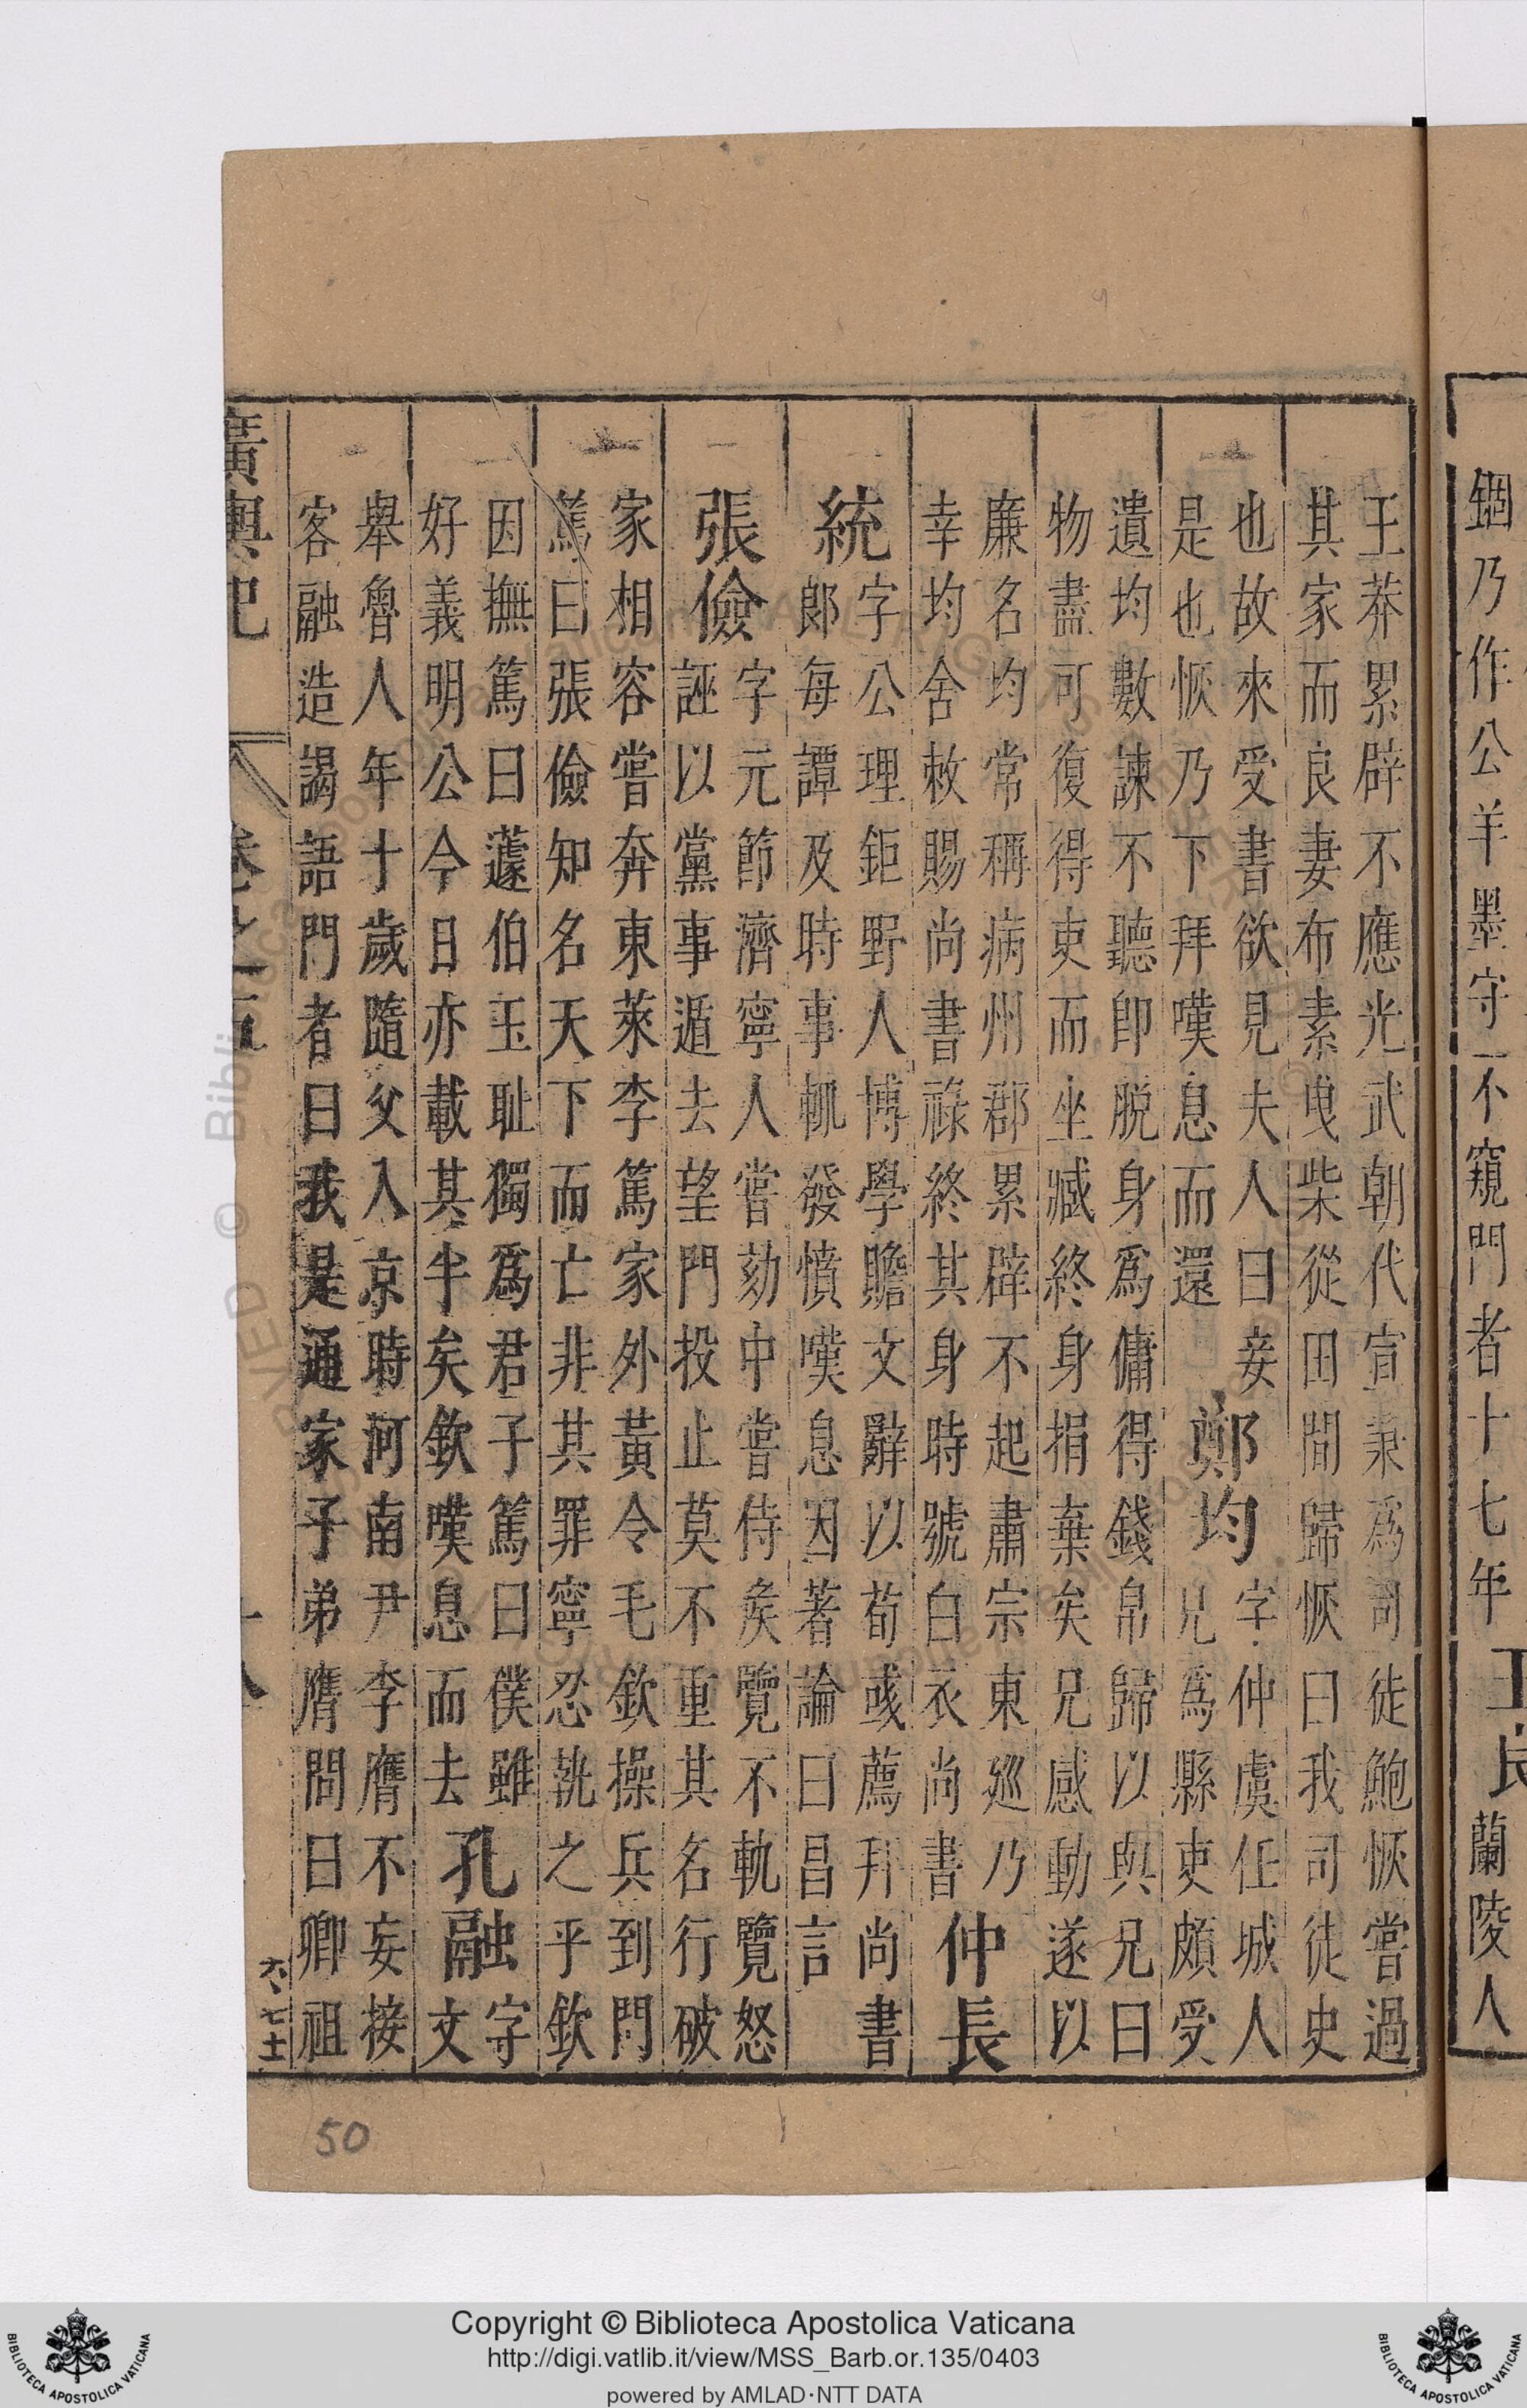 錮乃作公羊墨守不窺門者十七年
王良
蘭陵人
王莽累辟不應光武朝代宣秉爲司徒鮑恢嘗過
其家而良妻布素曳柴從田間歸恢曰我司徒史
也故來受書欲見夫人曰妾
是也恢乃下拜嘆息而還
鄭均
字仲虞任城人
兄爲縣吏頗受
遺均數諫不聽即脫身爲傭得錢帛歸以與兄曰
物盡可復得吏而坐臧終身捐棄矣兄感動遂以
廉名均常稱病州郡累辟不起肅宗東廵乃
幸均舍敕賜尚書祿終其身時號白衣尚書
仲長
統
字公理鉅野人博學贍文辭以荀彧薦拜尚書
郎每譚及時事輒發憤嘆息因著論曰昌言
張儉
字元節濟寧人嘗劾中嘗侍矦覽不軌覽怒
誣以黨事遁去望門投止莫不重其名行破
家相容嘗奔東萊李篤家外黃令毛欽操兵到門
篤曰張儉知名天下而亡非其罪寧忍執之乎欽
因撫篤曰蘧伯玉耻獨爲君子篤曰僕雖
好義明公今日亦載其半矣欽嘆息而去
孔融
字
文
舉魯人年十歲隨父入京時河南尹李膺不妄接
客融造謁語門者曰我是通家子弟膺問曰卿祖
廣輿記
50
Copyright © Biblioteca Apostolica Vaticana
http://digi.vatlib.it/view/MSS_Barb.or.135/0403
powered by AMLAD·NTT DATA
BIBLIOTECA APOSTOLICA VATICANA
BIBLIOTECA APOSTOLICA VATICANA